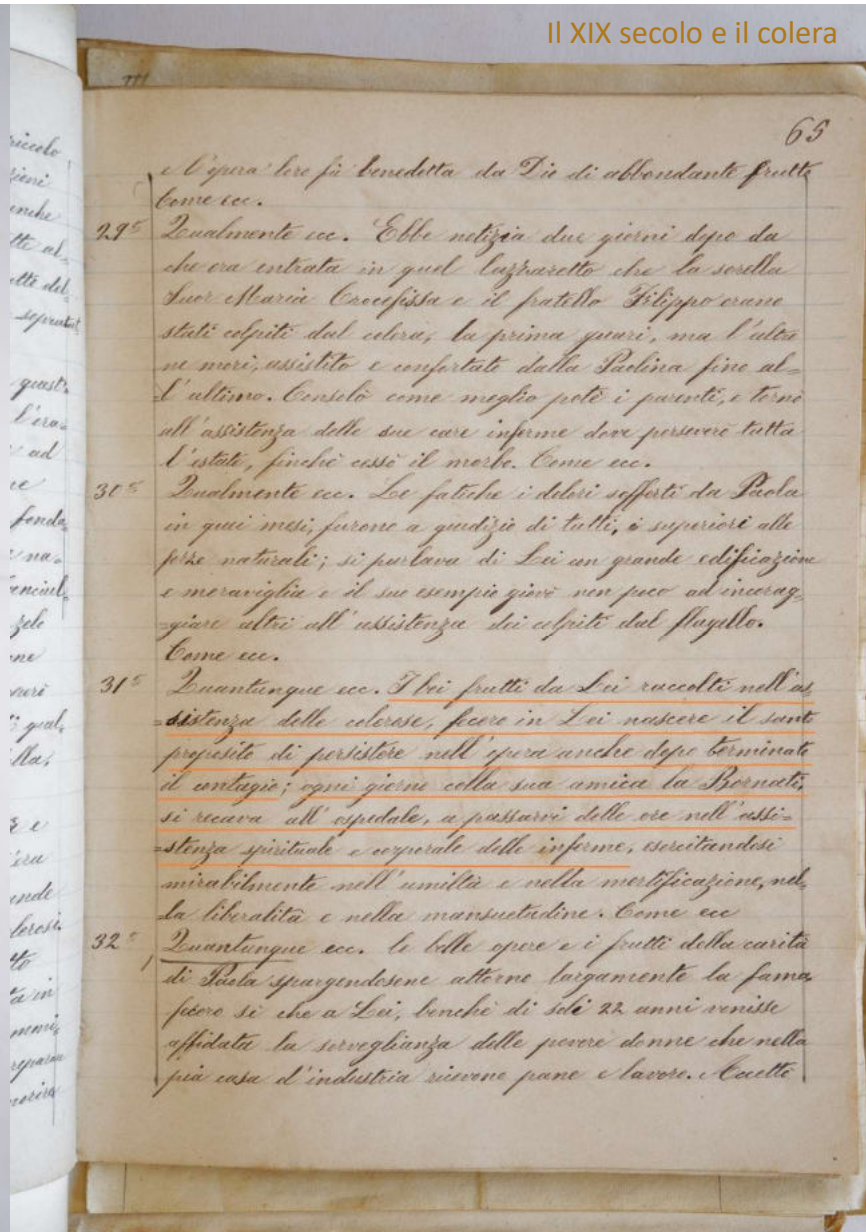 Il XIX secolo e il colera
65
e l'opera loro fù benedetta da Dio di abbondante frutto
Come ecc.
29° Qualmente ecc. Ebbe notizia due giorni dopo da
che era entrata in quel lazzaretto che la sorella
Suor Maria Crocefissa e il fratello Filippo erano
stati colpiti dal colera; la prima guarì, ma l'altro
ne morì, assistito e confortato dalla Paolina fino al=
l'ultimo. Consolò come meglio potè i parenti, e tornò
all'assistenza delle sue care inferme dove perseverò tutta
l'estate, finchè cessò il morbo. Come ecc.
30° Qualmente ecc. Le fatiche i dolori sofferti da Paola
in quei mesi, furono a giudizio di tutti, superiori alle
forze naturali; si parlava di Lei con grande edificazione
e meraviglia e il suo esempio giovò non poco ad incorag=
=giare altri all'assistenza dei colpiti dal flagello.
Come ecc.
31° Quantunque ecc. I bei frutti da Lei raccolti nell'as
=sistenza delle colerose, fecero in Lei nascere il santo
proposito di persistere nell'opera anche dopo terminato
il contagio; ogni giorno colla sua amica la Bornati,
si recava all'ospedale, a passarvi delle ore nell'assi=
=stenza spirituale e corporale delle inferme, esercitandosi
mirabilmente nell'umiltà e nella mortificazione, nel=
=la liberalità e nella mansuetudine. Come ecc
32° Quantunque ecc. le belle opere e i frutti della carità
di Paola spargendosene attorno largamente la fama,
fecero sì che a Lei, benchè di soli 22 anni venisse
affidata la sorveglianza delle povere donne che nella
pia casa d'industria ricevono pane e lavoro. Accettò